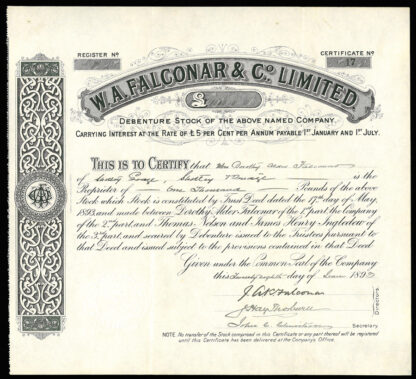 REGISTER Nº
CERTIFICATE Nº
17
W. A. FALCONAR & Cº. LIMITED.
£
DEBENTURE STOCK OF THE ABOVE NAMED COMPANY
CARRYING INTEREST AT THE RATE OF £5 PER CENT PER ANNUM PAYABLE 1ST JANUARY AND 1ST JULY.
THIS IS TO CERTIFY that Mrs Dorothy Alder Falconar
of is the
Proprietor of One Thousand Pounds of the above
Stock which Stock is constituted by Trust Deed dated the 17th day of May,
1893, and made between Dorothy Alder Falconar of the 1st part, the Company
of the 2nd part, and Thomas and James Henry Ingledew of
the 3rd part, and secured by Debenture issued to the Trustees pursuant to
that Deed and issued subject to the provisions contained in that Deed.
Given under the Common Seal of the Company
this day of June 1893
Falconar
Directors.
John
Secretary.
NOTE. No transfer of the Stock comprised in this Certificate or any part thereof will be registered
until this Certificate has been delivered at the Company's Office.